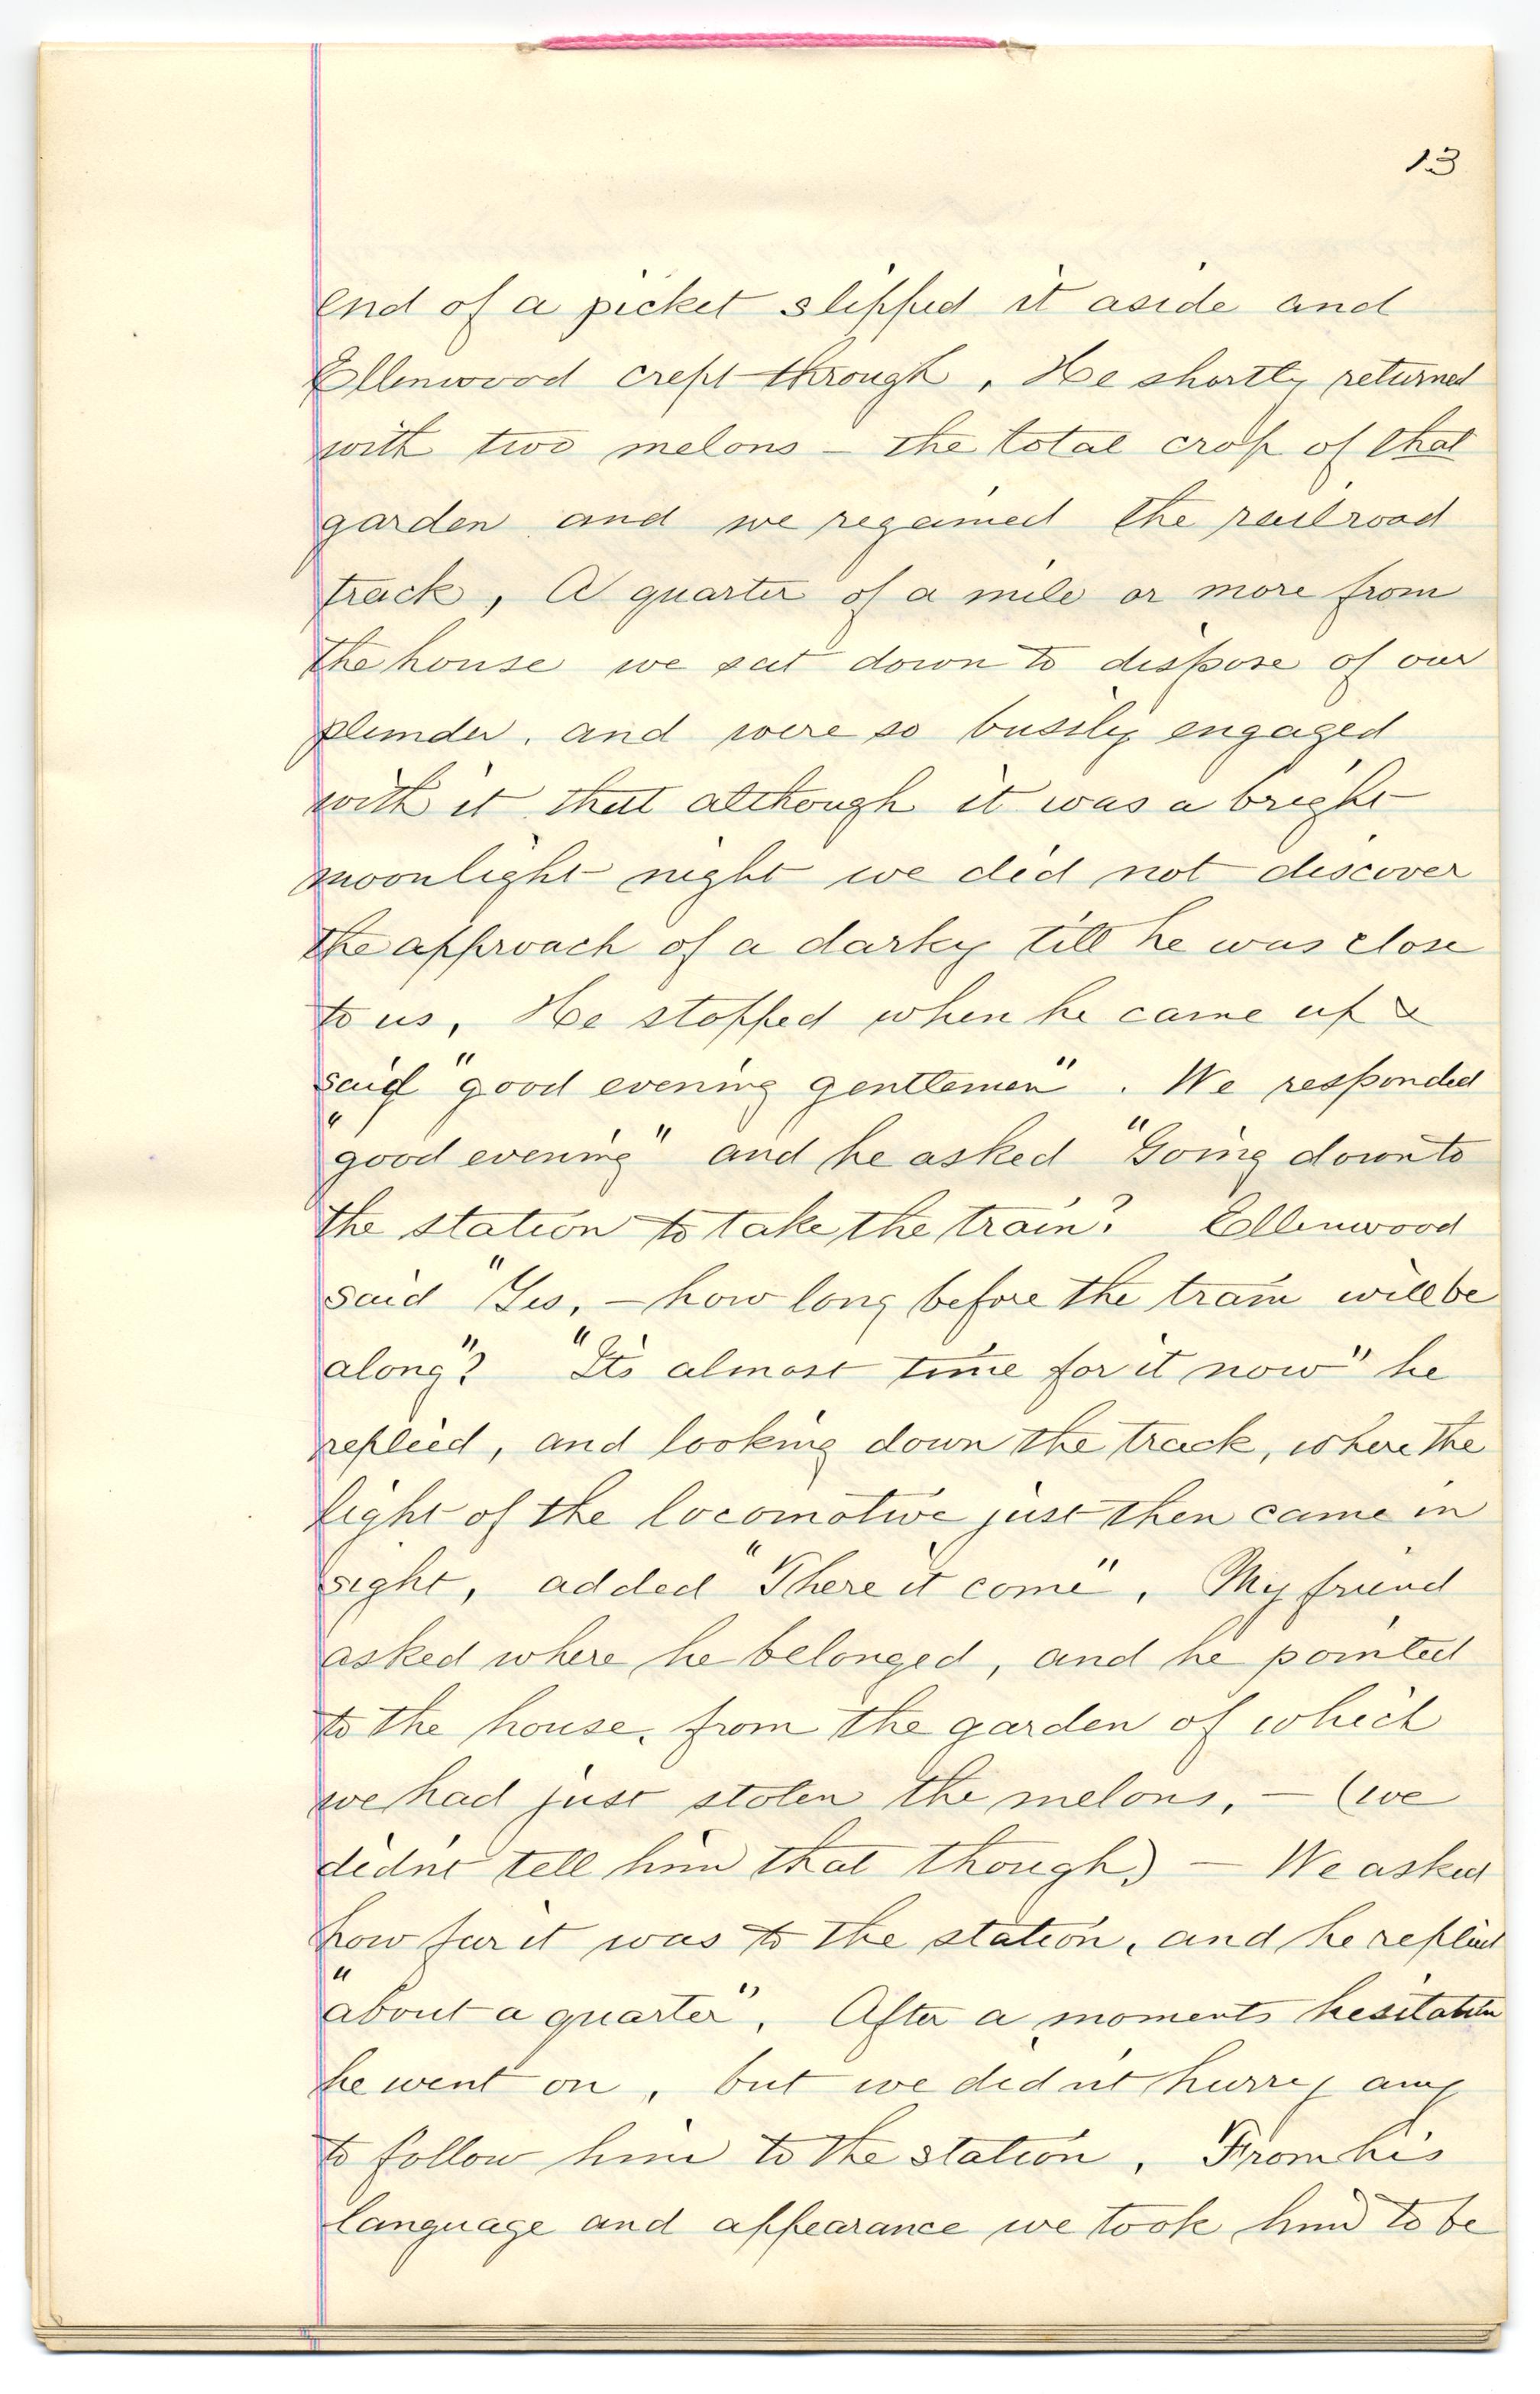 13
end of a picket slipped it aside and
Ellenwood crept through. He shortly returned
with two melons – the total crop of that
garden and we regained the railroad
track, A quarter of a mile or more from
the house we sat down to dispose of our
plunder, and were so bussily engaged
with it that although it was a bright
moonlight night we did not discover
the approach of a darky till he was close
to us, He stopped when he came up &
said "good evening gentlemen". We responded
"good evening" and he asked "Going down to
the station to take the train? Ellenwood
said "Yes, – how long before the train will be
along"? "Its almost time for it now" he
replied, and looking down the track, where the
light of the locomotive just then came in
sight, added "There it come", My friend
asked where he belonged, and he pointed
to the house, from the garden of which
we had just stolen the melons, – (we
didnt tell him that though) – We asked
how far it was to the station, and he replied
"about a quarter", After a moments hesitation
he went on, but we didnt hurry any
to follow him to the station, From his
language and appearance we took him to be